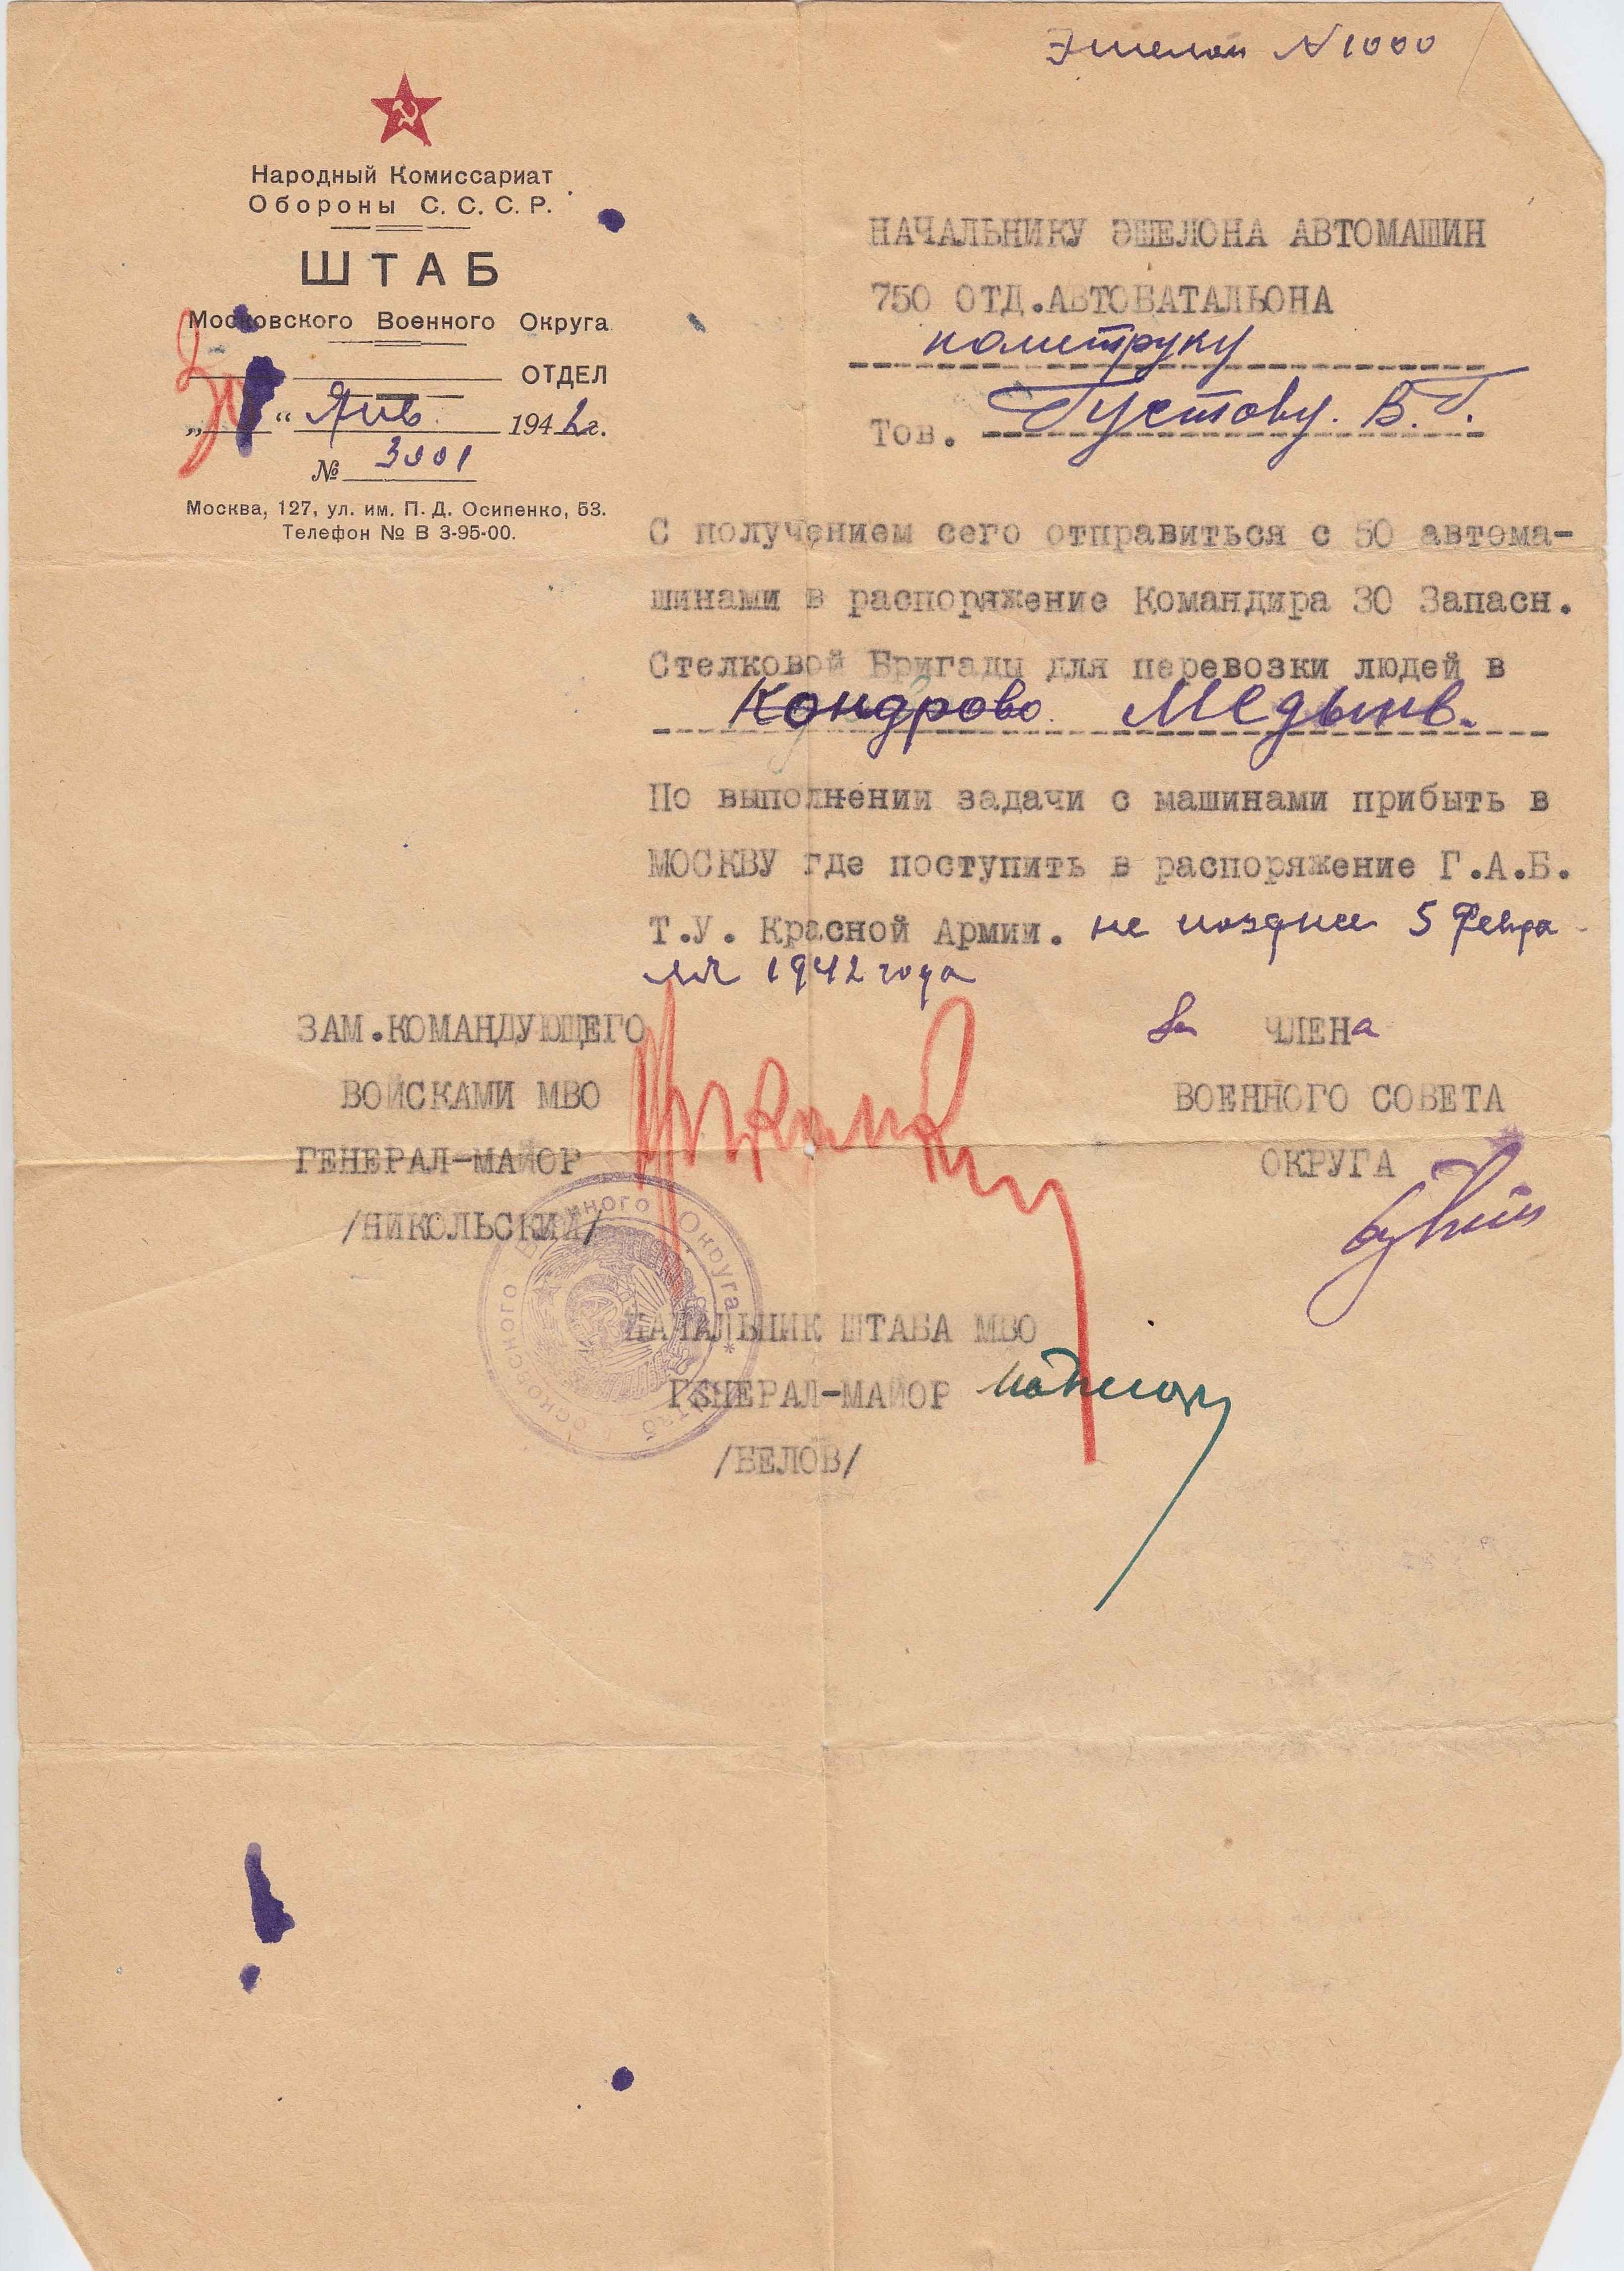 Эшелон №1000
Народный Комиссариат
Обороны С. С. С. Р.
ШТАБ
Московского Военного Округа
ОТДЕЛ
„ “ Янв. 1942г.
№ 3001
Москва, 127, ул. им. П. Д. Осипенко, 53.
Телефон № В 3-95-00.
НАЧАЛЬНИКУ ЭШЕЛОНА АВТОМАШИН
750 ОТД.АВТОБАТАЛЬОНА
политруку
Тов. Густову. В. Г.
С получением сего отправиться с 50 автома-
шинами в распоряжение Командира 30 Запасн.
Стелковой Бригады для перевозки людей в
Кондрово. Медынь.
По выполнении задачи с машинами прибыть в
МОСКВУ где поступить в распоряжение Г.А.Б.
Т.У. Красной Армии. не позднее 5 Февра-
ля 1942 года
ЗАМ.КОМАНДУЮЩЕГО
ВОЙСКАМИ МВО
ГЕНЕРАЛ-МАЙОР
/НИКОЛЬСКИЙ/
За ЧЛЕНа
ВОЕННОГО СОВЕТА
ОКРУГА
НАЧАЛЬНИК ШТАБА МВО
ГЕНЕРАЛ-МАЙОР
/БЕЛОВ/
Штаб Московского Военного Округа *